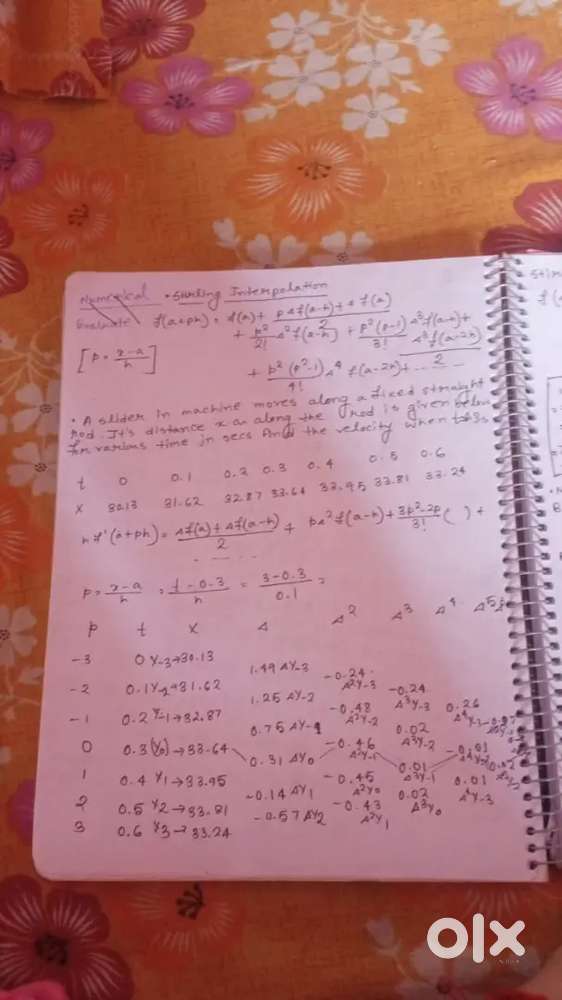 Numerical • Stirling Interpolation
Evaluate f(a+ph) = f(a) + p Δf(a-h) + Δf(a) / 2
+ p²/2! Δ² f(a-h) + p²(p-1)/3! Δ³f(a-h) + Δ³f(a-2h) / 2
[p = x-a / h]
+ p²(p²-1)/4! Δ⁴ f(a-2h) + ... 
• A slider in machine moves along a fixed straight
rod. It's distance x along the rod is given below
for various time in secs find the velocity when
t 0 0.1 0.2 0.3 0.4 0.5 0.6
x 30.13 31.62 32.87 33.64 33.95 33.81 33.24
h f'(a+ph) = Δf(a) + Δf(a-h) / 2 + pΔ² f(a-h) + 3p²-2p / 3! ( ) +
. . . . .
p = x-a / h = t-0.3 / h = 3-0.3 / 0.1 =
p t x Δ Δ² Δ³ Δ⁴ Δ⁵
-3 0 y-3→30.13
1.49 Δy-3
-2 0.1 y-2→31.62 -0.24 Δ²y-3
1.25 Δy-2 -0.24 Δ³y-3
-1 0.2 y-1→32.87 -0.48 Δ²y-2 0.26
0.75 Δy-1 0.02 Δ³y-2
0 0.3 (y0)→33.64 -0.46 Δ²y-1 -0.01
0.31 Δy0 0.01 Δ³y-1
1 0.4 y1→33.95 -0.45 Δ²y0 0.01 Δ⁴y-3
-0.14 Δy1 0.02 Δ³y0
2 0.5 y2→33.81 -0.43 Δ²y1
-0.57 Δy2
3 0.6 y3→33.24
Stir
f(
olx